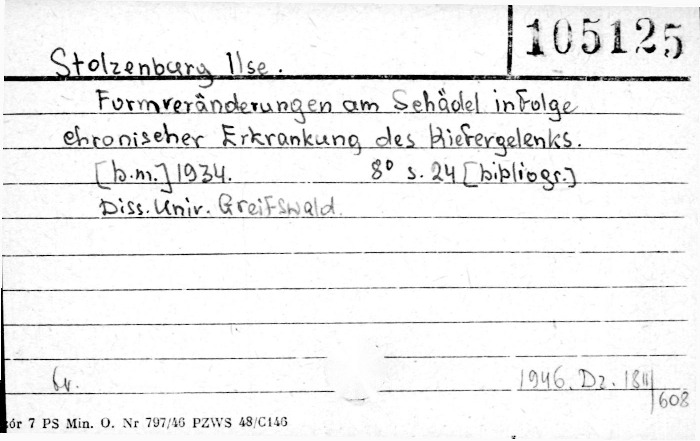 105125
Stolzenburg Ilse.
Formveränderungen am Schädel infolge
chronischer Erkrankung des Kiefergelenks.
[b.m.] 1934. 8° s. 24 [bibliogr.]
Diss. Univ. Greifswald.
br.
1946. Dz. 184/608
ór 7 PS Min. O. Nr 797/46 PZWS 48/C146